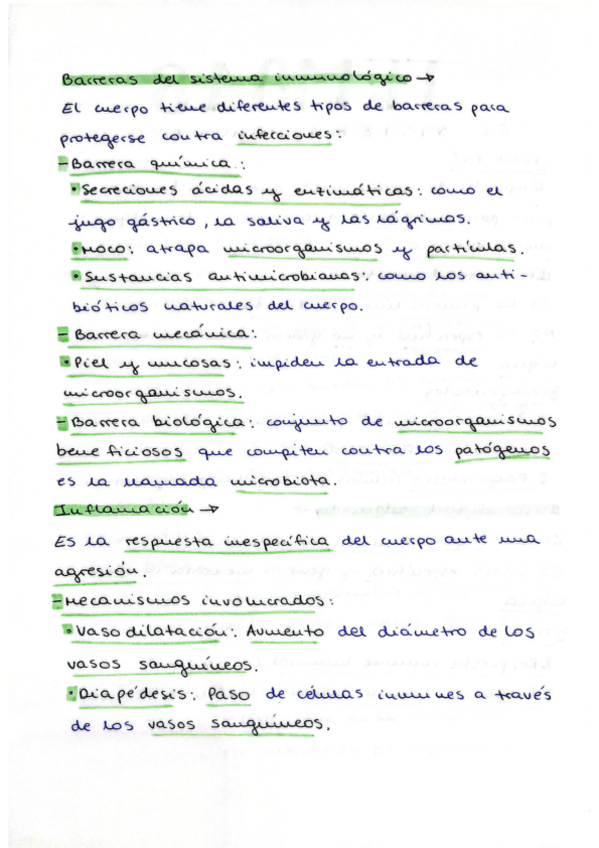 Barreras del sistema inmunológico →
El cuerpo tiene diferentes tipos de barreras para
protegerse contra infecciones:
- Barrera química:
• Secreciones ácidas y enzimáticas: como el
jugo gástrico, la saliva y las lágrimas.
• Moco: atrapa microorganismos y partículas.
• Sustancias antimicrobianas: como los anti-
bióticos naturales del cuerpo.
- Barrera mecánica:
• Piel y mucosas: impiden la entrada de
microorganismos.
- Barrera biológica: conjunto de microorganismos
beneficiosos que compiten contra los patógenos
es la llamada microbiota.
Inflamación →
Es la respuesta inespecífica del cuerpo ante una
agresión.
- Mecanismos involucrados:
• Vasodilatación: Aumento del diámetro de los
vasos sanguíneos.
• Diapédesis: Paso de células inmunes a través
de los vasos sanguíneos.